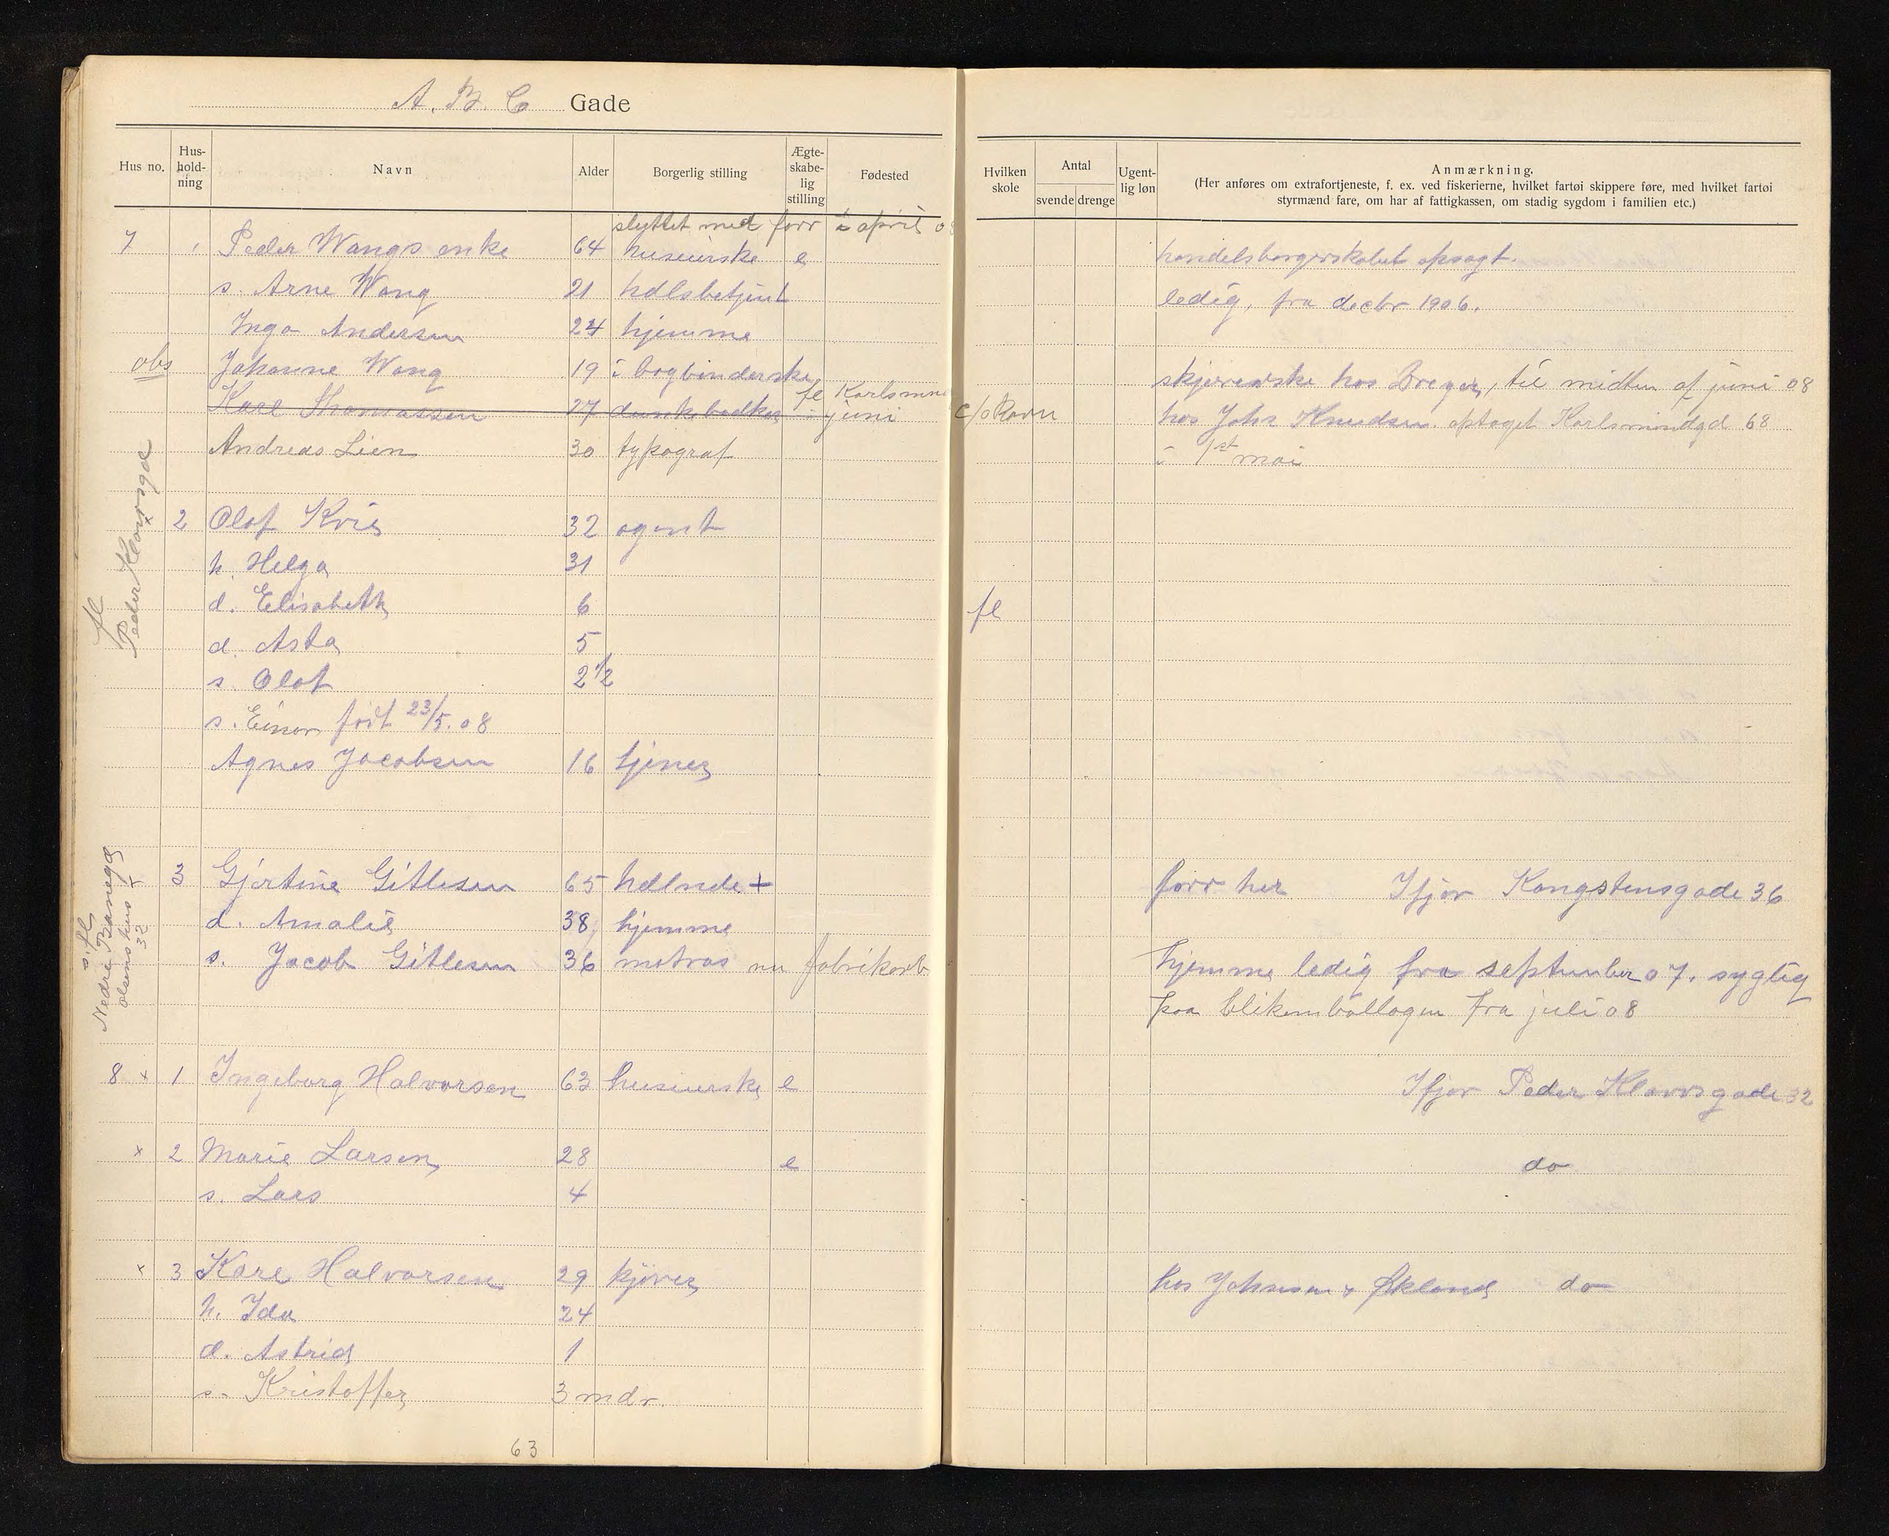 A. B. C Gade
Hus no. Hus-hold-ning Navn Alder Borgerlig stilling Ægte-skabe-lig stilling Fødested Hvilken skole Antal svende drenge Ugent-lig løn Anmærkning.
(Her anføres om extrafortjeneste, f. ex. ved fiskerierne, hvilket fartøi skippere føre, med hvilket fartøi
styrmænd fare, om har af fattigkassen, om stadig sygdom i familien etc.)
flyttet med forr i april 08
7 1 Peder Wangs enke 64 husierske e handelsborgerskabet opsagt.
s. Arne Wang 21 hdlsbetjent ledig, fra decbr 1906.
Inga Andersen 24 hjemme
obs Johanne Wang 19 i bogbinderske skjærerske hos Dreyer, til midten af juni 08
fl Karlsmin
Karl Thomassen 27 juni c/o Ravn hos Johs Knudsen optaget Karlsmindgd 68
Andreas Lien 30 typograf i 1st mai
2 Olaf Kvie 32 agent
h. Helga 31
d. Elisabeth 6 fl
d. Asta 5
s. Olaf 2 1/2
s. Einar født 23/5. 08
Agnes Jacobsen 16 tjener
fl
Peder Klowsgd
3 Gjertine Gitlesen 65 hdlnde + forr her Ifjor Kongstensgade 36
d. Amalie 38 hjemme
s. Jacob Gitlesen 36 matros nu fabrikarb hjemme ledig fra september 07. syglig
paa blikemballagen fra juli 08
s. fl
Nedre Banegd
Olsens hus
32
8 x 1 Ingeborg Halvorsen 63 husierske e Ifjor Peder Klowsgade 32
x 2 Marie Larsen 28 e do
s. Lars 4
x 3 Karl Halvorsen 29 kjører hos Johnsen & Økland do
h. Ida 24
d. Astrid 1
s. Kristoffer 3 mdr.
63